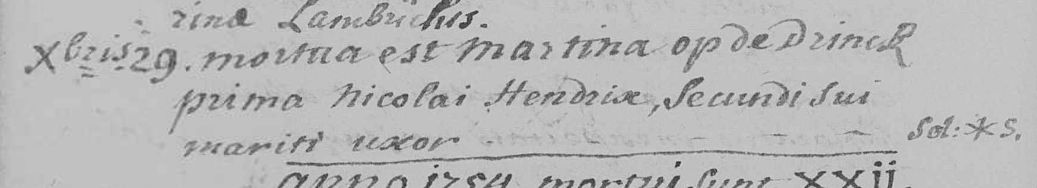 rinæ Lambrichs.
Xbris 29. mortua est Martina op de Drinck
prima Nicolai Hendrix, Secundi sui
mariti uxor - - - - sol: * s.
anno 1754 mortui sunt XXII.